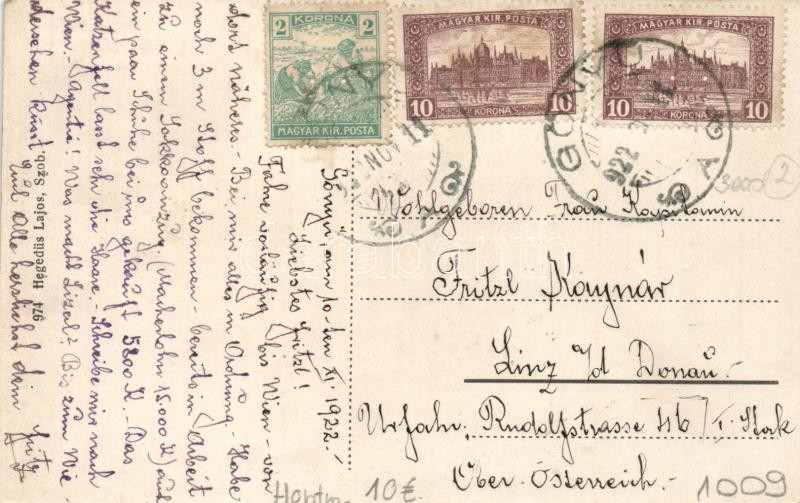 2 KORONA
MAGYAR KIR. POSTA
MAGYAR KIR. POSTA
10 10
KORONA
MAGYAR KIR. POSTA
10 10
KORONA
NOV 11
GÖNYÜ
922
3000 2
Gönyü, am 10-ten XI. 1922.
Liebstes Fritzl!
Fahre vorläufig bis Wien - von
dort näheres - Bei mir alles in Ordnung - Habe
noch 3 m Stoff bekommen - bereits in Arbeit
zu einem Sakkoanzug. (Macherlohn 15.000 K) auch
ein paar Schuhe bei uns gekauft 5800 K. - Das
Katzenfell lasst sehr die Haare. - Schreibe mir nach
Wien - Agentie! Was macht Liserl? Bis zum Wie-
dersehen küsst
und alle herzlichst dein Fritz
Wohlgeboren Frau Kapitänin
Fritzl Kaynár
Linz a/d Donau.-
Urfahr, Rudolfstrasse I. Stock
Ober-Österreich.-
974 Hegedüs Lajos, Szob.
darabanth
10€
1009